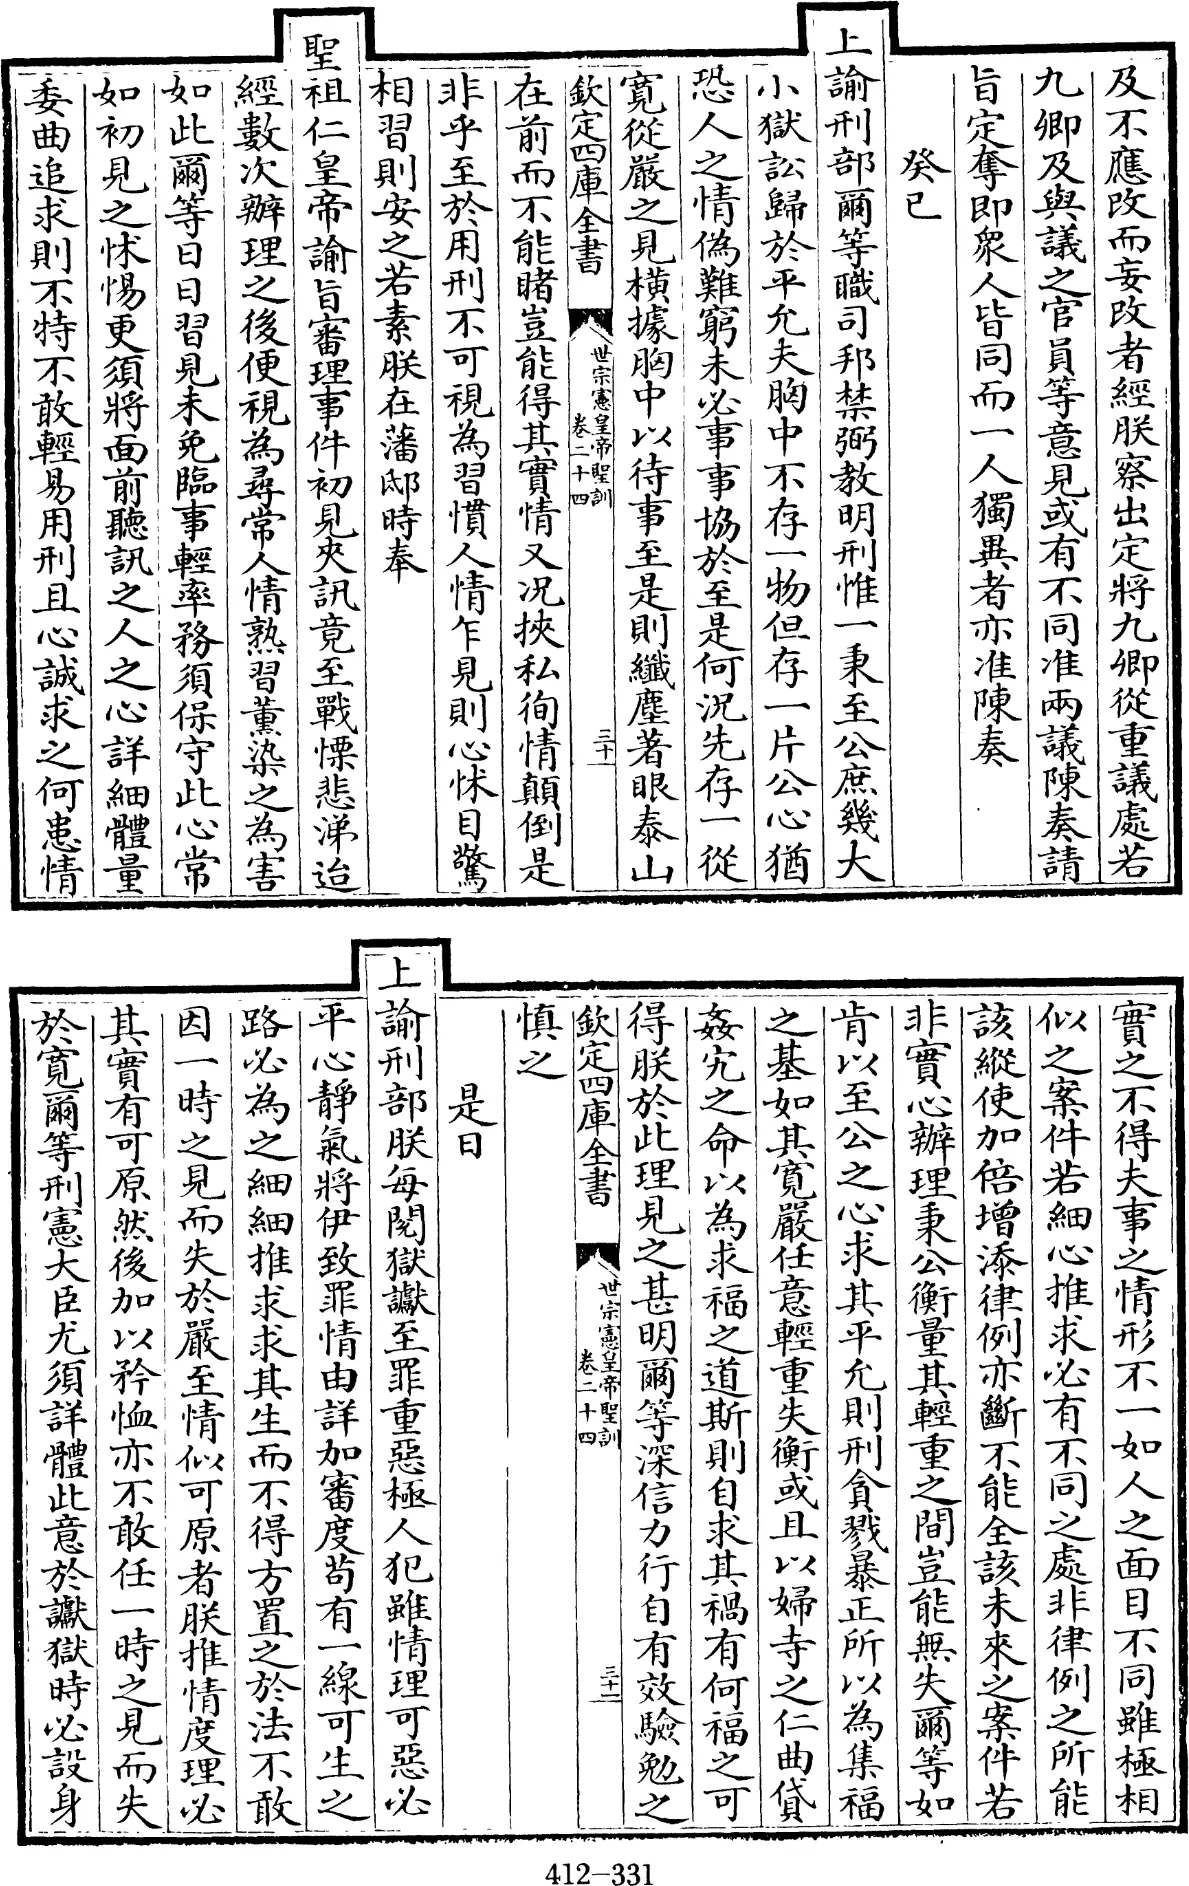 及不應改而妄改者經朕察出定將九卿從重議處若
九卿及與議之官員等意見或有不同准兩議陳奏請
旨定奪即衆人皆同而一人獨異者亦准陳奏
癸巳
上諭刑部爾等職司邦禁弼教明刑惟一秉至公庶幾大
小獄訟歸於平允夫胸中不存一物但存一片公心猶
恐人之情偽難窮未必事事協於至是何況先存一從
寬從嚴之見橫據胸中以待事至是則纖塵著眼泰山
欽定四庫全書
世宗憲皇帝聖訓
卷二十四
三十
在前而不能睹豈能得其實情又况挾私徇情顛倒是
非乎至於用刑不可視為習慣人情乍見則心怵目驚
相習則安之若素朕在藩邸時奉
聖祖仁皇帝諭旨審理事件初見夾訊竟至戰慄悲涕迨
經數次辦理之後便視為尋常人情熟習薰染之為害
如此爾等日日習見未免臨事輕率務須保守此心常
如初見之怵惕更須將面前聽訊之人之心詳細體量
委曲追求則不特不敢輕易用刑且心誠求之何患情
實之不得夫事之情形不一如人之面目不同雖極相
似之案件若細心推求必有不同之處非律例之所能
該縱使加倍增添律例亦斷不能全該未來之案件若
非實心辦理秉公衡量其輕重之間豈能無失爾等如
肯以至公之心求其平允則刑貪戮暴正所以為集福
之基如其寬嚴任意輕重失衡或且以婦寺之仁曲貸
姦宄之命以為求福之道斯則自求其禍有何福之可
得朕於此理見之甚明爾等深信力行自有效驗勉之
欽定四庫全書
世宗憲皇帝聖訓
卷二十四
三十一
慎之
是日
上諭刑部朕每閱獄讞至罪重惡極人犯雖情理可惡必
平心靜氣將伊致罪情由詳加審度苟有一線可生之
路必為之細細推求求其生而不得方置之於法不敢
因一時之見而失於嚴至情似可原者朕推情度理必
其實有可原然後加以矜恤亦不敢任一時之見而失
於寬爾等刑憲大臣尤須詳體此意於讞獄時必設身
412-331